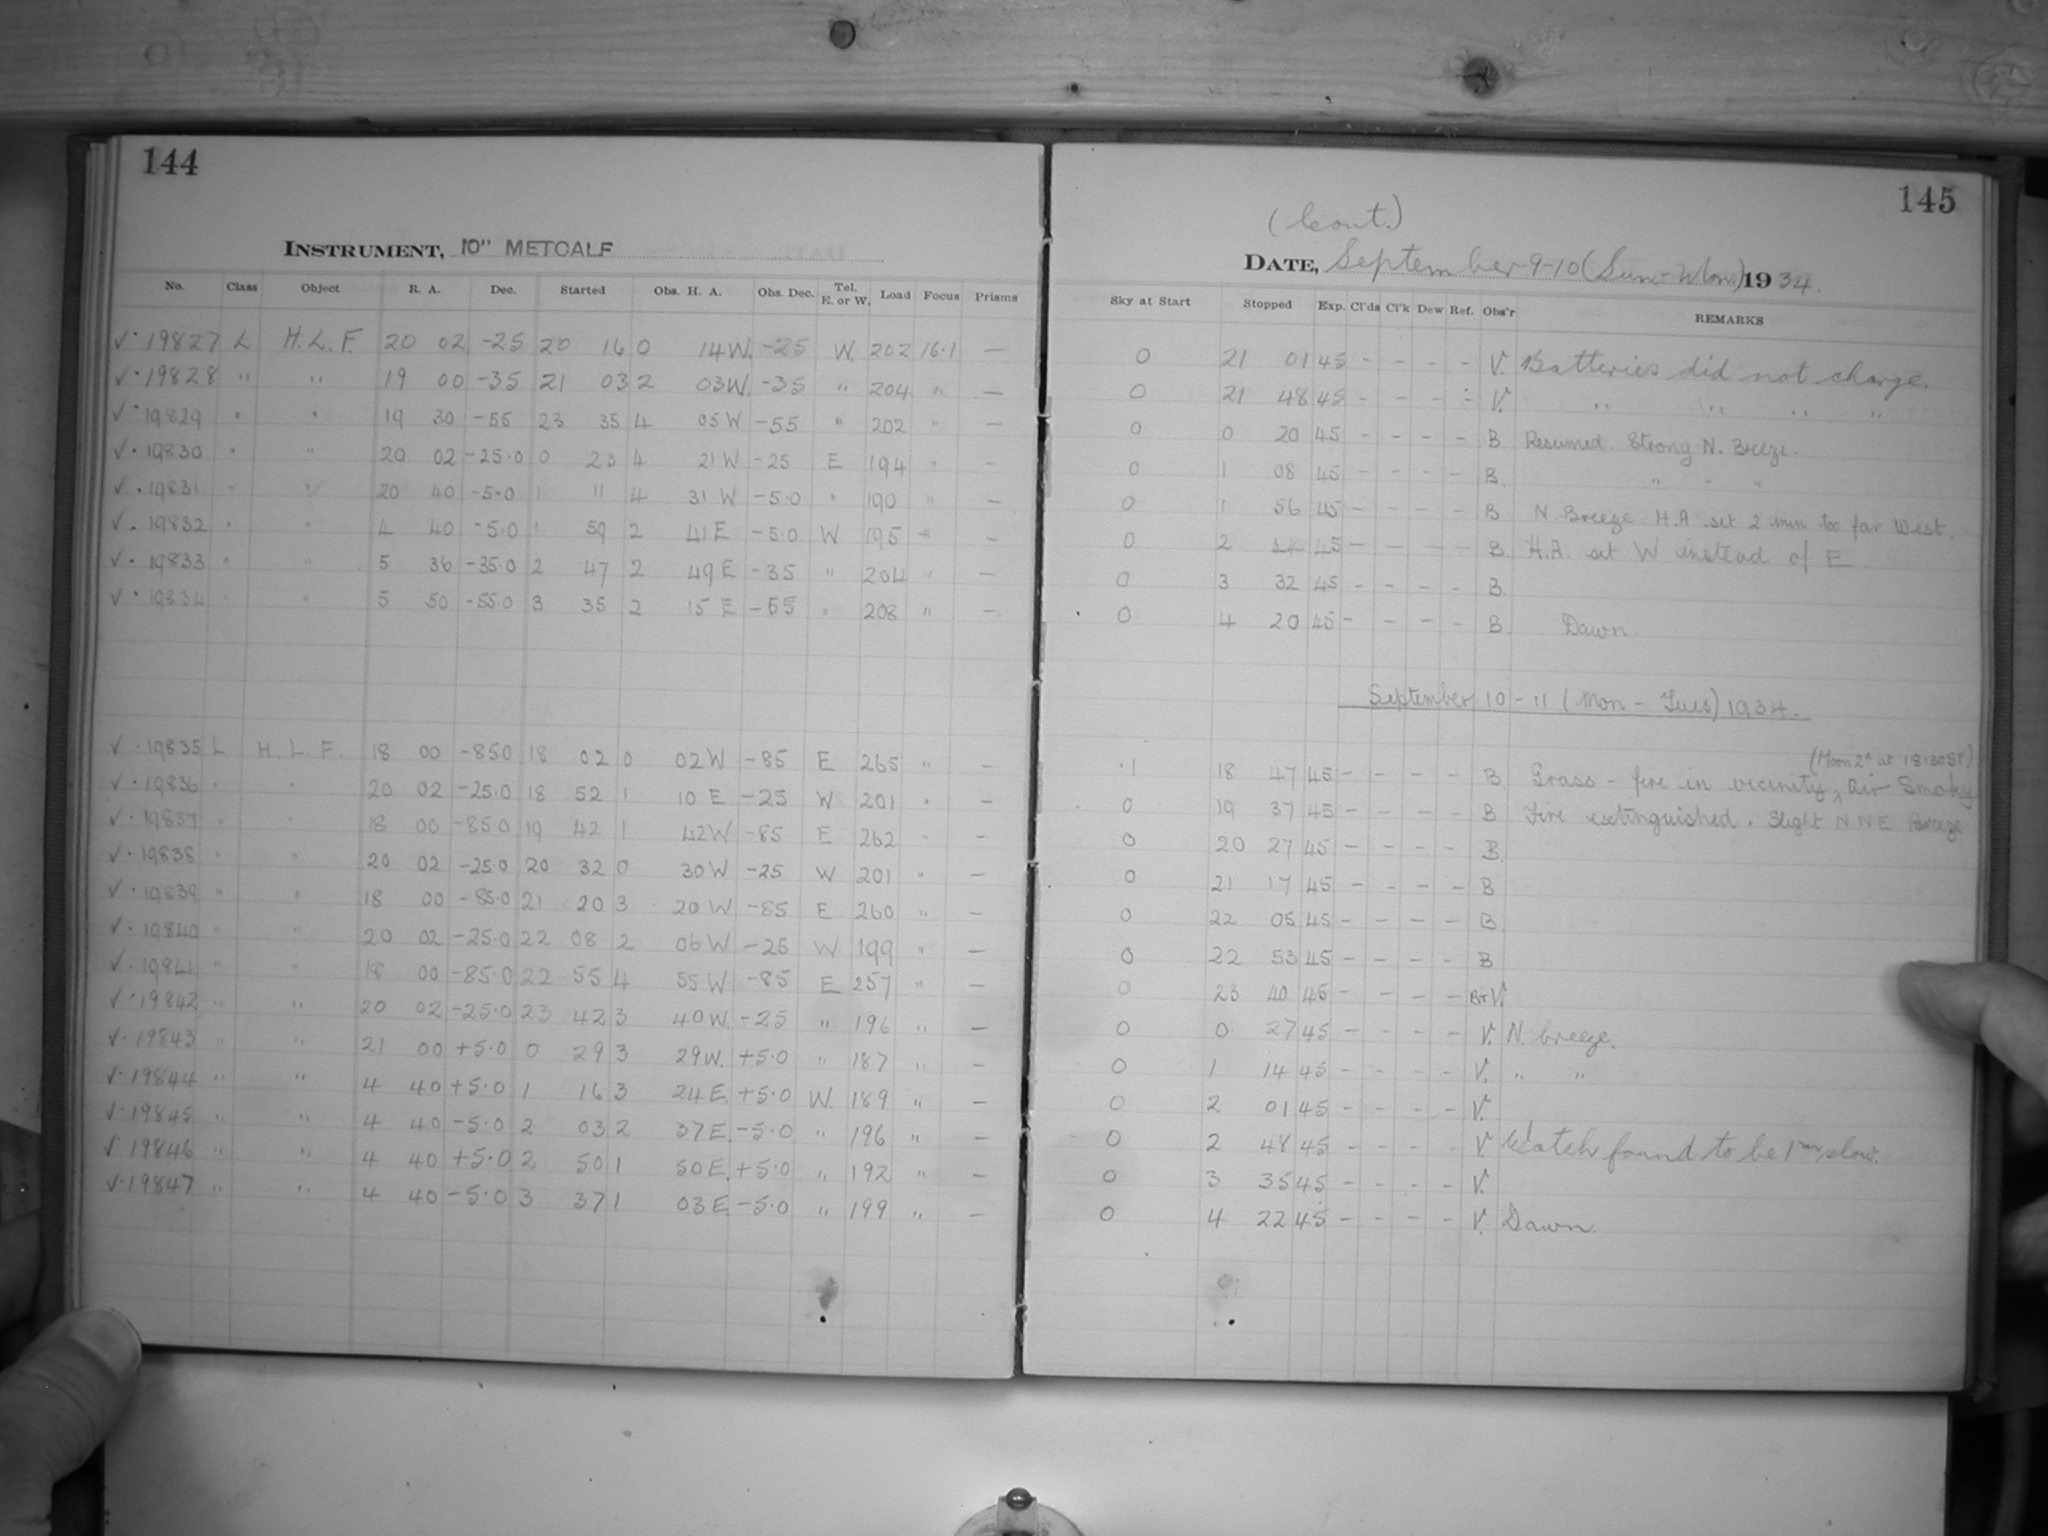 144
INSTRUMENT, 10" METCALF
No. Class Object R. A. Dec. Started Obs. H. A. Obs. Dec. Tel. E. or W. Load Focus Prisms
√·19827 L H.L.F. 20 02 -25 20 16 0 14W. -25 W. 202 16·1 —
√·19828 " " 19 00 -35 21 03 2 03W. -35 " 204 " —
√·19829 " " 19 30 -55 23 35 4 05 W -55 " 202 " —
√·19830 " " 20 02 -25·0 0 23 4 21 W -25 E 194 " —
√·19831 " " 20 40 -5·0 1 11 4 31 W -5·0 " 190 " —
√·19832 " " 4 40 -5·0 1 59 2 41 E -5·0 W 195 " —
√·19833 " " 5 36 -35·0 2 47 2 49 E -35 " 204 " —
√·19834 " " 5 50 -55·0 3 35 2 15 E -55 " 208 " —
√·19835 L H.L.F. 18 00 -85·0 18 02 0 02 W -85 E 265 " —
√·19836 " " 20 02 -25·0 18 52 1 10 E -25 W 201 " —
√·19837 " " 18 00 -85·0 19 42 1 42 W -85 E 262 " —
√·19838 " " 20 02 -25·0 20 32 0 30 W -25 W 201 " —
√·19839 " " 18 00 -85·0 21 20 3 20 W -85 E 260 " —
√·19840 " 20 02 -25·0 22 08 2 06 W -25 W 199 " —
√·19841 " " 18 00 -85·0 22 55 4 55 W -85 E 257 " —
√·19842 " " 20 02 -25·0 23 42 3 40 W. -25 " 196 " —
√·19843 " " 21 00 +5·0 0 29 3 29W. +5·0 " 187 " —
√·19844 " " 4 40 +5·0 1 16 3 24 E. +5·0 W. 189 " —
√·19845 " " 4 40 -5·0 2 03 2 37 E. -5·0 " 196 " —
√·19846 " " 4 40 +5·0 2 50 1 50 E. +5·0 " 192 " —
√·19847 " " 4 40 -5·0 3 37 1 03 E. -5·0 " 199 " —
145
(Cont.)
DATE, September 9-10 (Sun-Mon) 1934.
Sky at Start Stopped Exp. Cl'ds Cl'k Dew Ref. Obs'r REMARKS
0 21 01 45 - - - - V. Batteries did not charge.
0 21 48 45 - - - - V. " " " "
0 0 20 45 - - - - B Resumed. Strong N. Breeze.
0 1 08 45 - - - - B. " " "
0 1 56 45 - - - - B N. Breeze H.A set 2 min too far West.
0 2 45 - - - - B. H.A. set W instead of E.
0 3 32 45 - - - - B.
0 4 20 45 - - - - B. Dawn.
September 10-11 (Mon - Tues) 1934.
(Moon 2d at 18·30 ST)
·1 18 47 45 - - - - B Grass - fire in vicinity, Air Smoky
0 19 37 45 - - - - B Fire extinguished. Slight N N E Breeze
0 20 27 45 - - - - B.
0 21 17 45 - - - - B
0 22 05 45 - - - - B
0 22 53 45 - - - - B
0 23 40 45 - - - - B+V.
0 0 27 45 - - - - V. N. breeze.
0 1 14 45 - - - - V. " "
0 2 01 45 - - - - V.
0 2 48 45 - - - - V. Watch found to be 1m slow.
0 3 35 45 - - - - V.
0 4 22 45 - - - - V. Dawn.